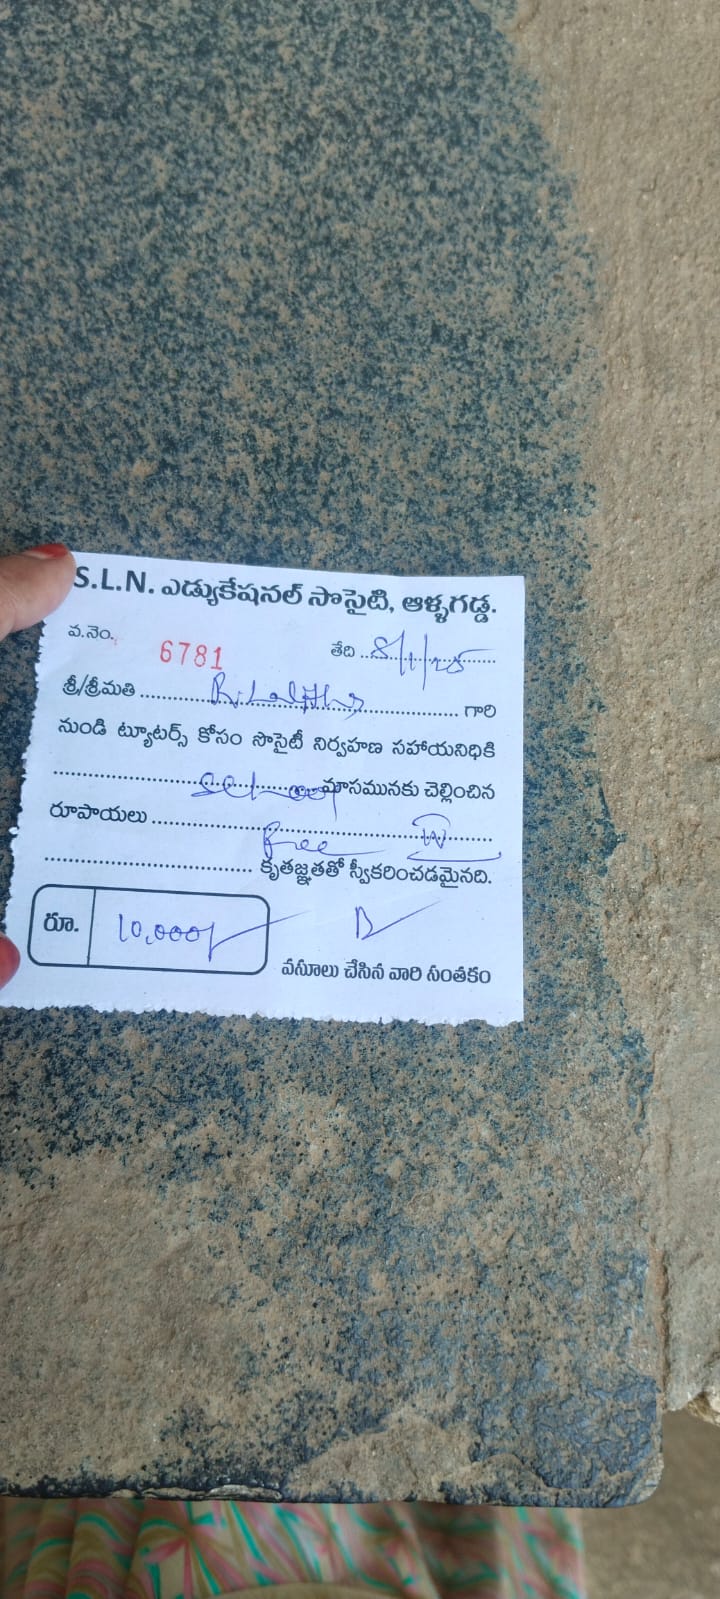 S.L.N. ఎడ్యుకేషనల్ సొసైటి, ఆళ్ళగడ్డ.
వ.నెం. 6781 తేది 8/1/25
శ్రీ/శ్రీమతి గారి
నుండి ట్యూటర్స్ కోసం సొసైటీ నిర్వహణ సహాయనిధికి
School మాసమునకు చెల్లించిన
రూపాయలు
Free కృతజ్ఞతతో స్వీకరించడమైనది.
రూ. 10,000/-
వసూలు చేసిన వారి సంతకం